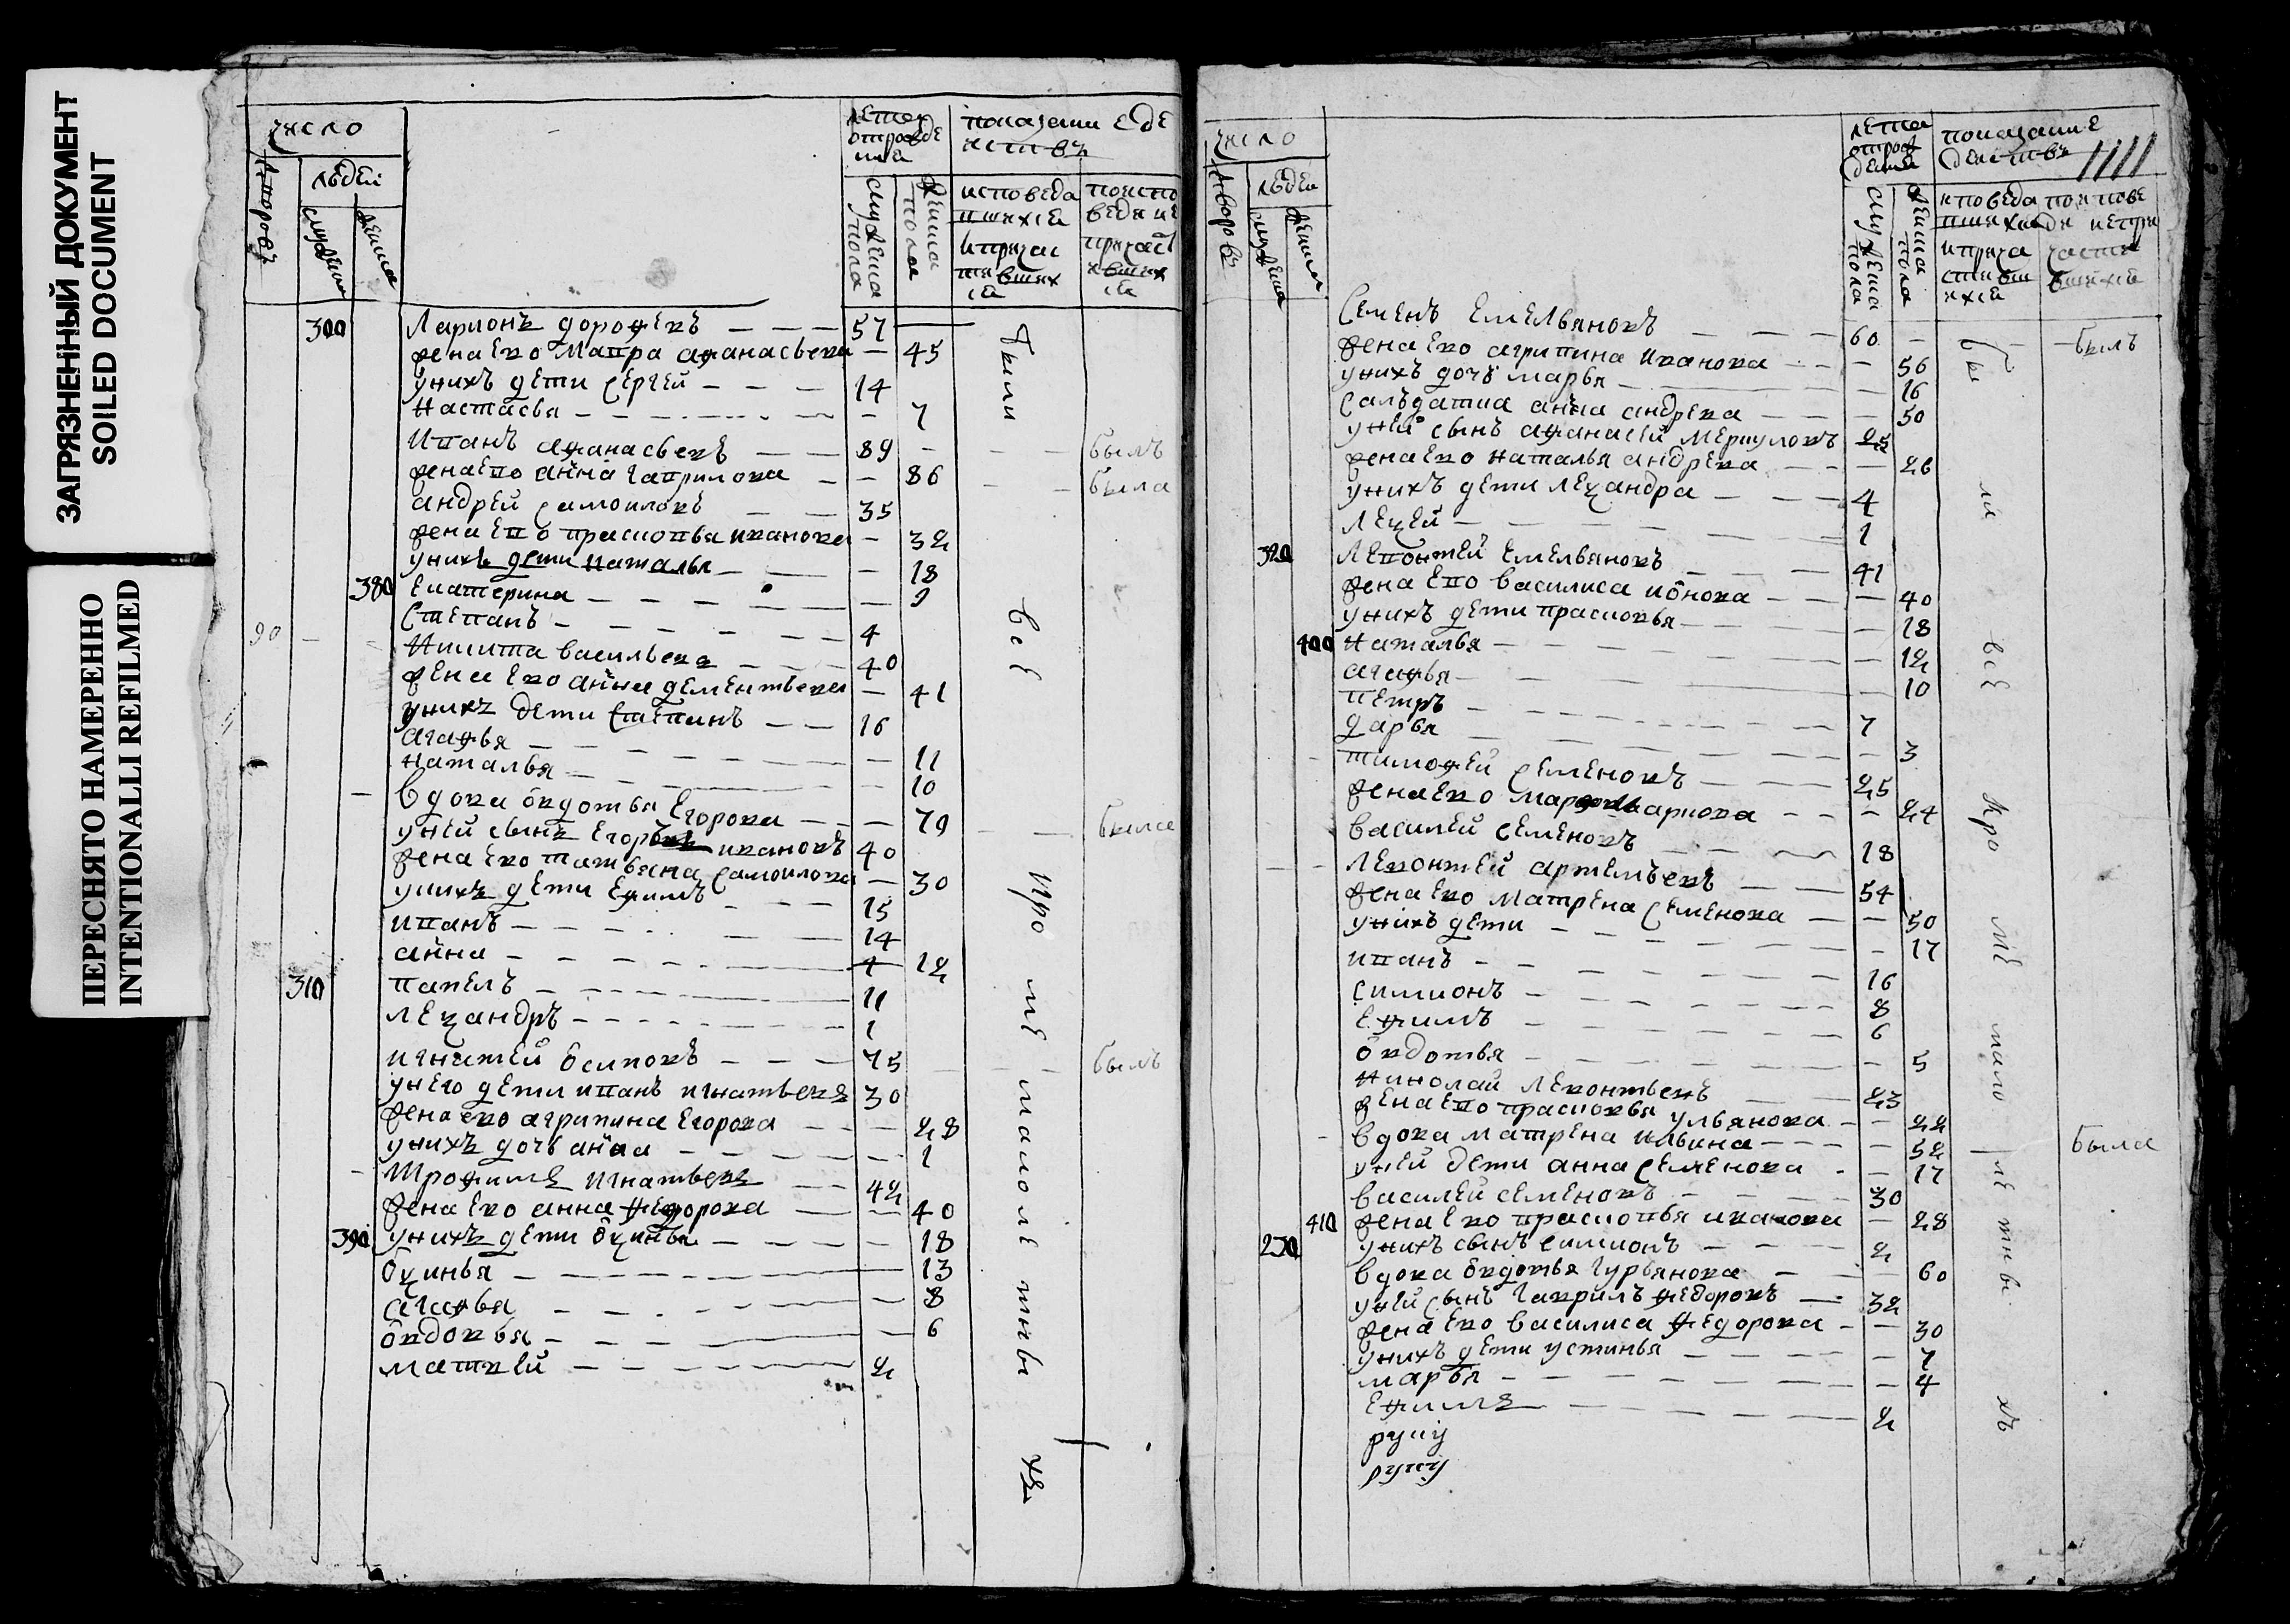 ЗАГРЯЗНЕННЫЙ ДОКУМЕНТ
SOILED DOCUMENT
ПЕРЕСНЯТО НАМЕРЕННО
INTENTIONALLI REFILMED
число
людей
дворовъ
лета от рождения
показание действъ
исповедавшихся и причастившихся
по исповеди не причастившихся
300 Ларионъ дорофеевъ 57
жена ево Мавра афанасьева 45
у нихъ дети сергей 14
настасья 7
иванъ афанасьевъ 89 былъ
жена ево анна гаврилова 86 была
андрей самоиловъ 35
жена ево прасковья иванова 32
у нихъ дети наталья 18
380 екатерина 9
степанъ 4
90 никита васильевъ 40
жена ево анна дементьева 41
у нихъ дети степанъ 16
агафья 11
наталья 10
вдова овдотья егорова 79 была
у ней сынъ егоръ ивановъ 40
жена ево татьяна самоилова 30
у нихъ дети ефимъ 15
иванъ 14
анна 12
310 павелъ 11
лександръ 1
игнатей осиповъ 75 былъ
у него дети иванъ игнатьевъ 30
жена ево агрипина егорова 28
у нихъ дочь анна 1
трофимъ игнатьевъ 42
жена ево анна федорова 40
390 у нихъ дети оксинья 18
оксинья 13
агафья 8
овдовья 6
матвей 2
были все кроме малолетныхъ
число
людей
дворовъ
лета от рождения
показание действъ
исповедавшихся и причастившихся
по исповеди не причастившихся
семенъ емельяновъ 60 былъ
жена ево агрипина иванова 56
у нихъ дочь марья 16
салъдатка анна андрева 50
у ней сынъ афанасей меркуловъ 25
жена ево наталья андрева 26
у нихъ дети лександра 4
лексей 1
320 левонтей емельяновъ 41
жена ево василиса ионова 40
у нихъ дети прасковья 18
400 наталья 12
агафья 10
петръ 7
дарья 3
тимофей семеновъ 25
жена ево марфа ларионова 24
василей семеновъ 18
левонтей артемьевъ 54
жена ево матрена семенова 50
у нихъ дети 17
иванъ 16
симионъ 8
ефимъ 6
овдотья 5
николай левонтьевъ 23
жена ево прасковья ульянова 22
вдова матрена ильина 52 была
у ней дети анна семенова 17
василей семеновъ 30
410 жена ево прасковья иванова 28
230 у нихъ сынъ симионъ 2
вдова овдотья гурьянова 60
у ней сынъ гаврилъ федоровъ 32
жена ево василиса федорова 30
у нихъ дети устинья 7
марья 4
ефимъ 2
руку
руку
были все кроме малолетныхъ